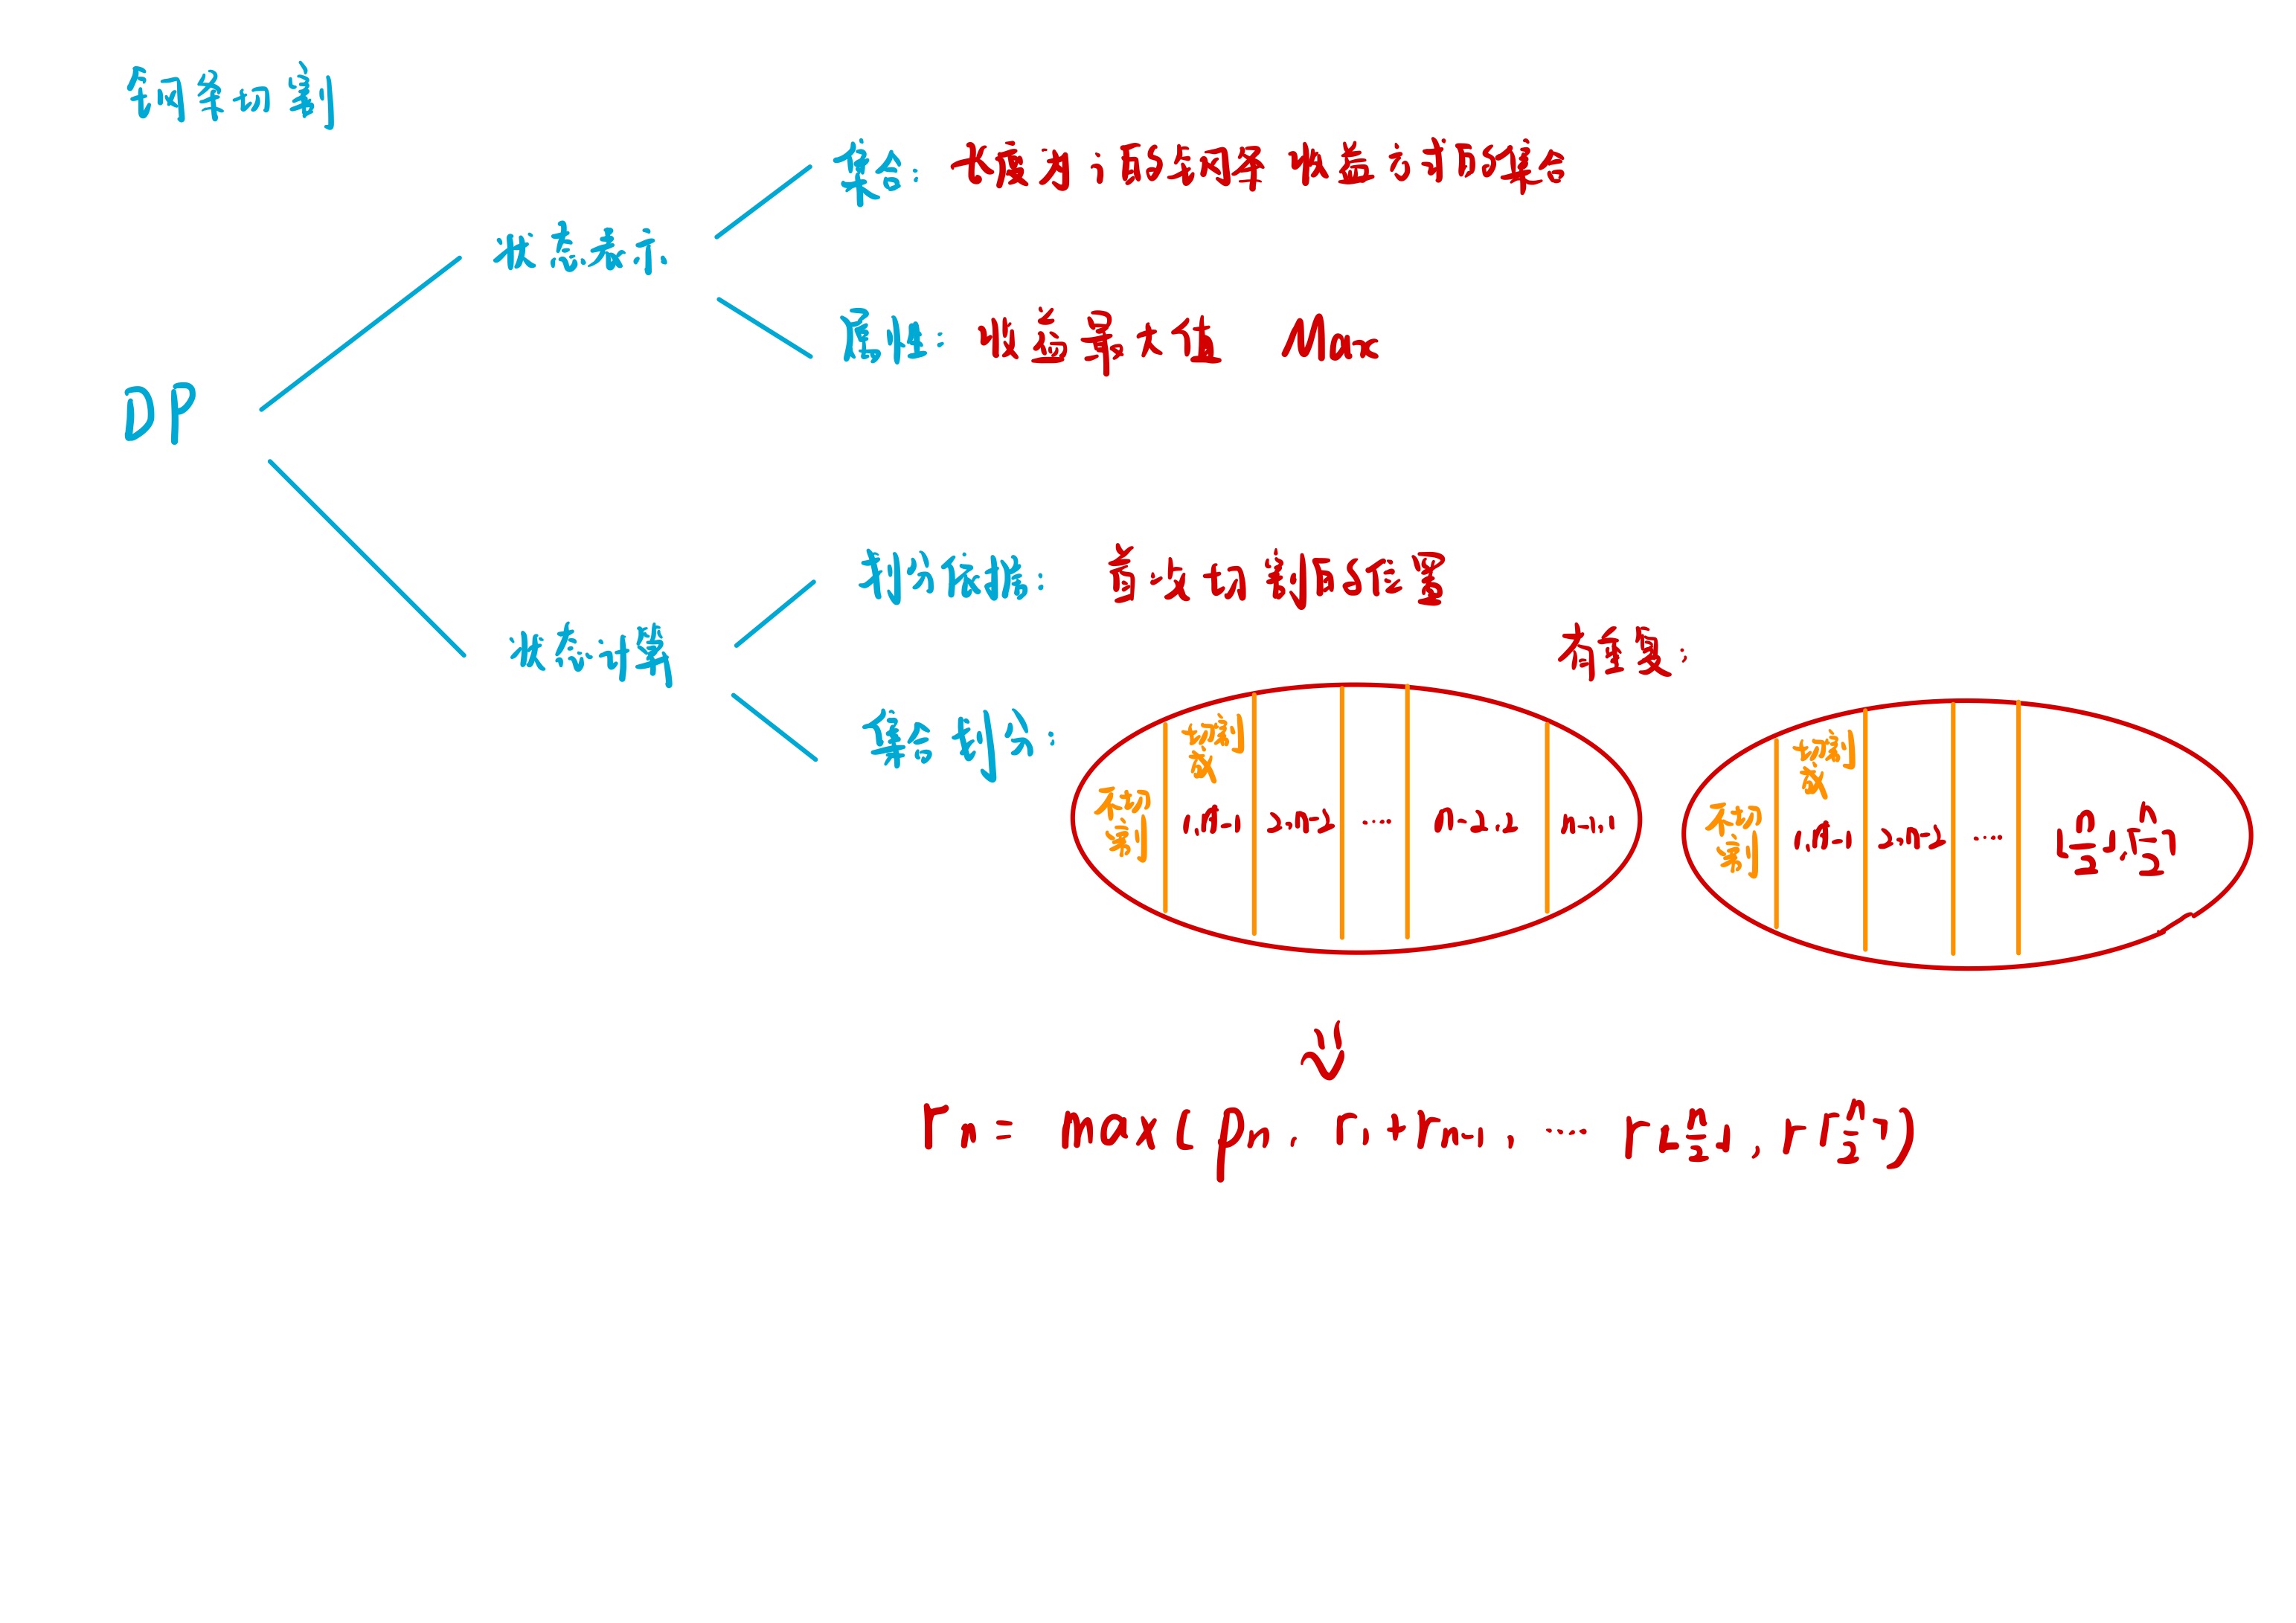 钢条切割
集合：长度为i的钢条收益方式的集合
状态表示
属性：收益最大值 Max
DP
划分依据：首次切割的位置
状态计算
有重复：
集合划分：
不切割
切割成
1,n-1
2,n-2
....
n-2,2
n-1,1
不切割
切割成
1,n-1
2,n-2
....
⌊n/2⌋,⌈n/2⌉
rn = max(pn, r1+rn-1, ... r⌊n/2⌋, r⌈n/2⌉)